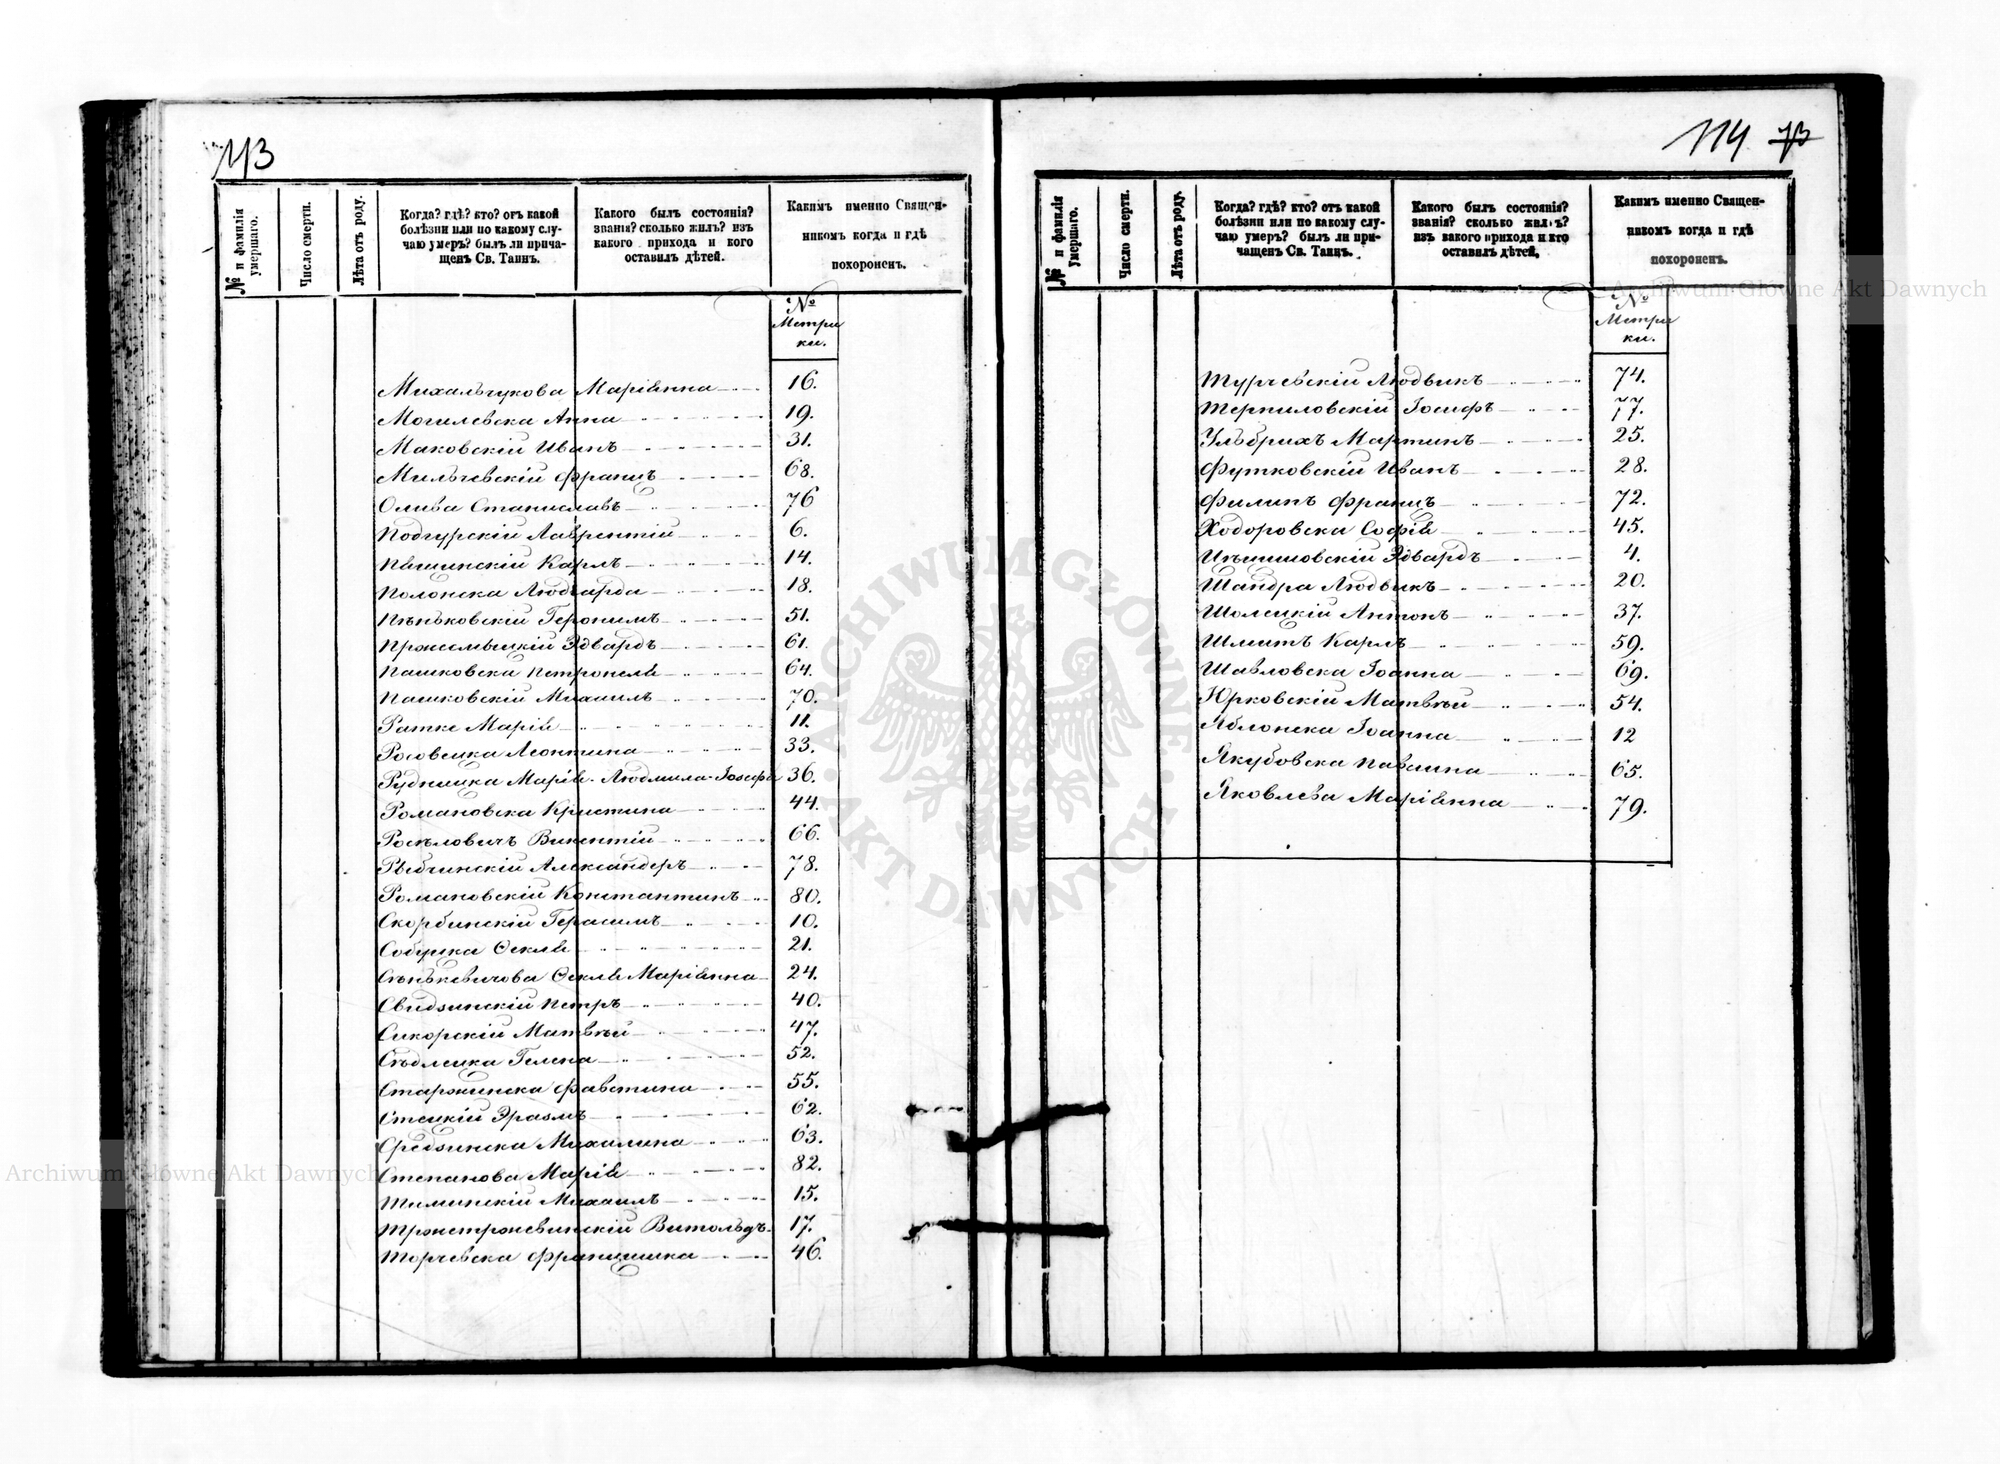 113
№ и фамилія умершаго.
Число смерти.
Лѣта отъ роду.
Когда? гдѣ? кто? отъ какой
болѣзни или по какому слу-
чаю умеръ? былъ ли прича-
щенъ Св. Таинъ.
Какого былъ состоянія?
званія? сколько жилъ? изъ
какого прихода и кого
оставилъ дѣтей.
Какимъ именно Священ-
никомъ когда и гдѣ
похороненъ.
№
Метри
ки.
Михальчукова Маріянна 16.
Могилевска Анна 19.
Маковскій Иванъ 31.
Мильчевскій Францъ 68.
Олива Станиславъ 76
Подгурскій Лаврентій 6.
Пягинскій Карлъ 14.
Полонска Людгарда 18.
Пѣньковскій Геронимъ 51.
Пржемыцкій Эдвардъ 61.
Пашковска Петронеля 64.
Пашковскій Михаилъ 70.
Ратке Марія 11.
Росовецка Леонтина 33.
Рудницка Марія-Людмила-Іозефа 36.
Романовска Кристина 44.
Роскловичъ Викентій 66.
Рыбчинскій Александеръ 78.
Романовскій Константинъ 80.
Скорбинскій Герасимъ 10.
Собуцка Ѳекля 21.
Сѣнькевичова Ѳекля Маріянна 24.
Свидзинскій Петръ 40.
Сикорскій Матвѣй 47.
Сѣдлецка Гелена 52.
Старжинска Фавстина 55.
Стецкій Эразмъ 62.
Средзинска Михалина 63.
Степанова Марія 82.
Тиминскій Михаилъ 15.
Тржетржевинскій Витольдъ 17.
Торчевска Францишка 46.
114 73
№ и фамилія умершаго.
Число смерти.
Лѣта отъ роду.
Когда? гдѣ? кто? отъ какой
болѣзни или по какому слу-
чаю умеръ? былъ ли при-
чащенъ Св. Таинъ.
Какого былъ состоянія?
званія? сколько жилъ?
изъ какого прихода и кто
оставилъ дѣтей.
Какимъ именно Священ-
никомъ когда и гдѣ
похороненъ.
№
Метри
ки.
Турчевскій Людвикъ 74.
Терпиловскій Іосифъ 77.
Ульбрихъ Мартинъ 25.
Футковскій Иванъ 28.
Филипъ Францъ 72.
Ходоровска Софія 45.
Цѣшишовскій Эдвардъ 4.
Шандра Людвикъ 20.
Шолецкій Антонъ 37.
Шмитъ Карлъ 59.
Шавловска Іоанна 69.
Юрковскій Матвѣй 54.
Яблонска Іоанна 12
Якубовска Павлина 65.
Яковлева Маріянна 79.
Archiwum Główne Akt Dawnych
ARCHIWUM GŁÓWNE
AKT DAWNYCH
Archiwum Główne Akt Dawnych